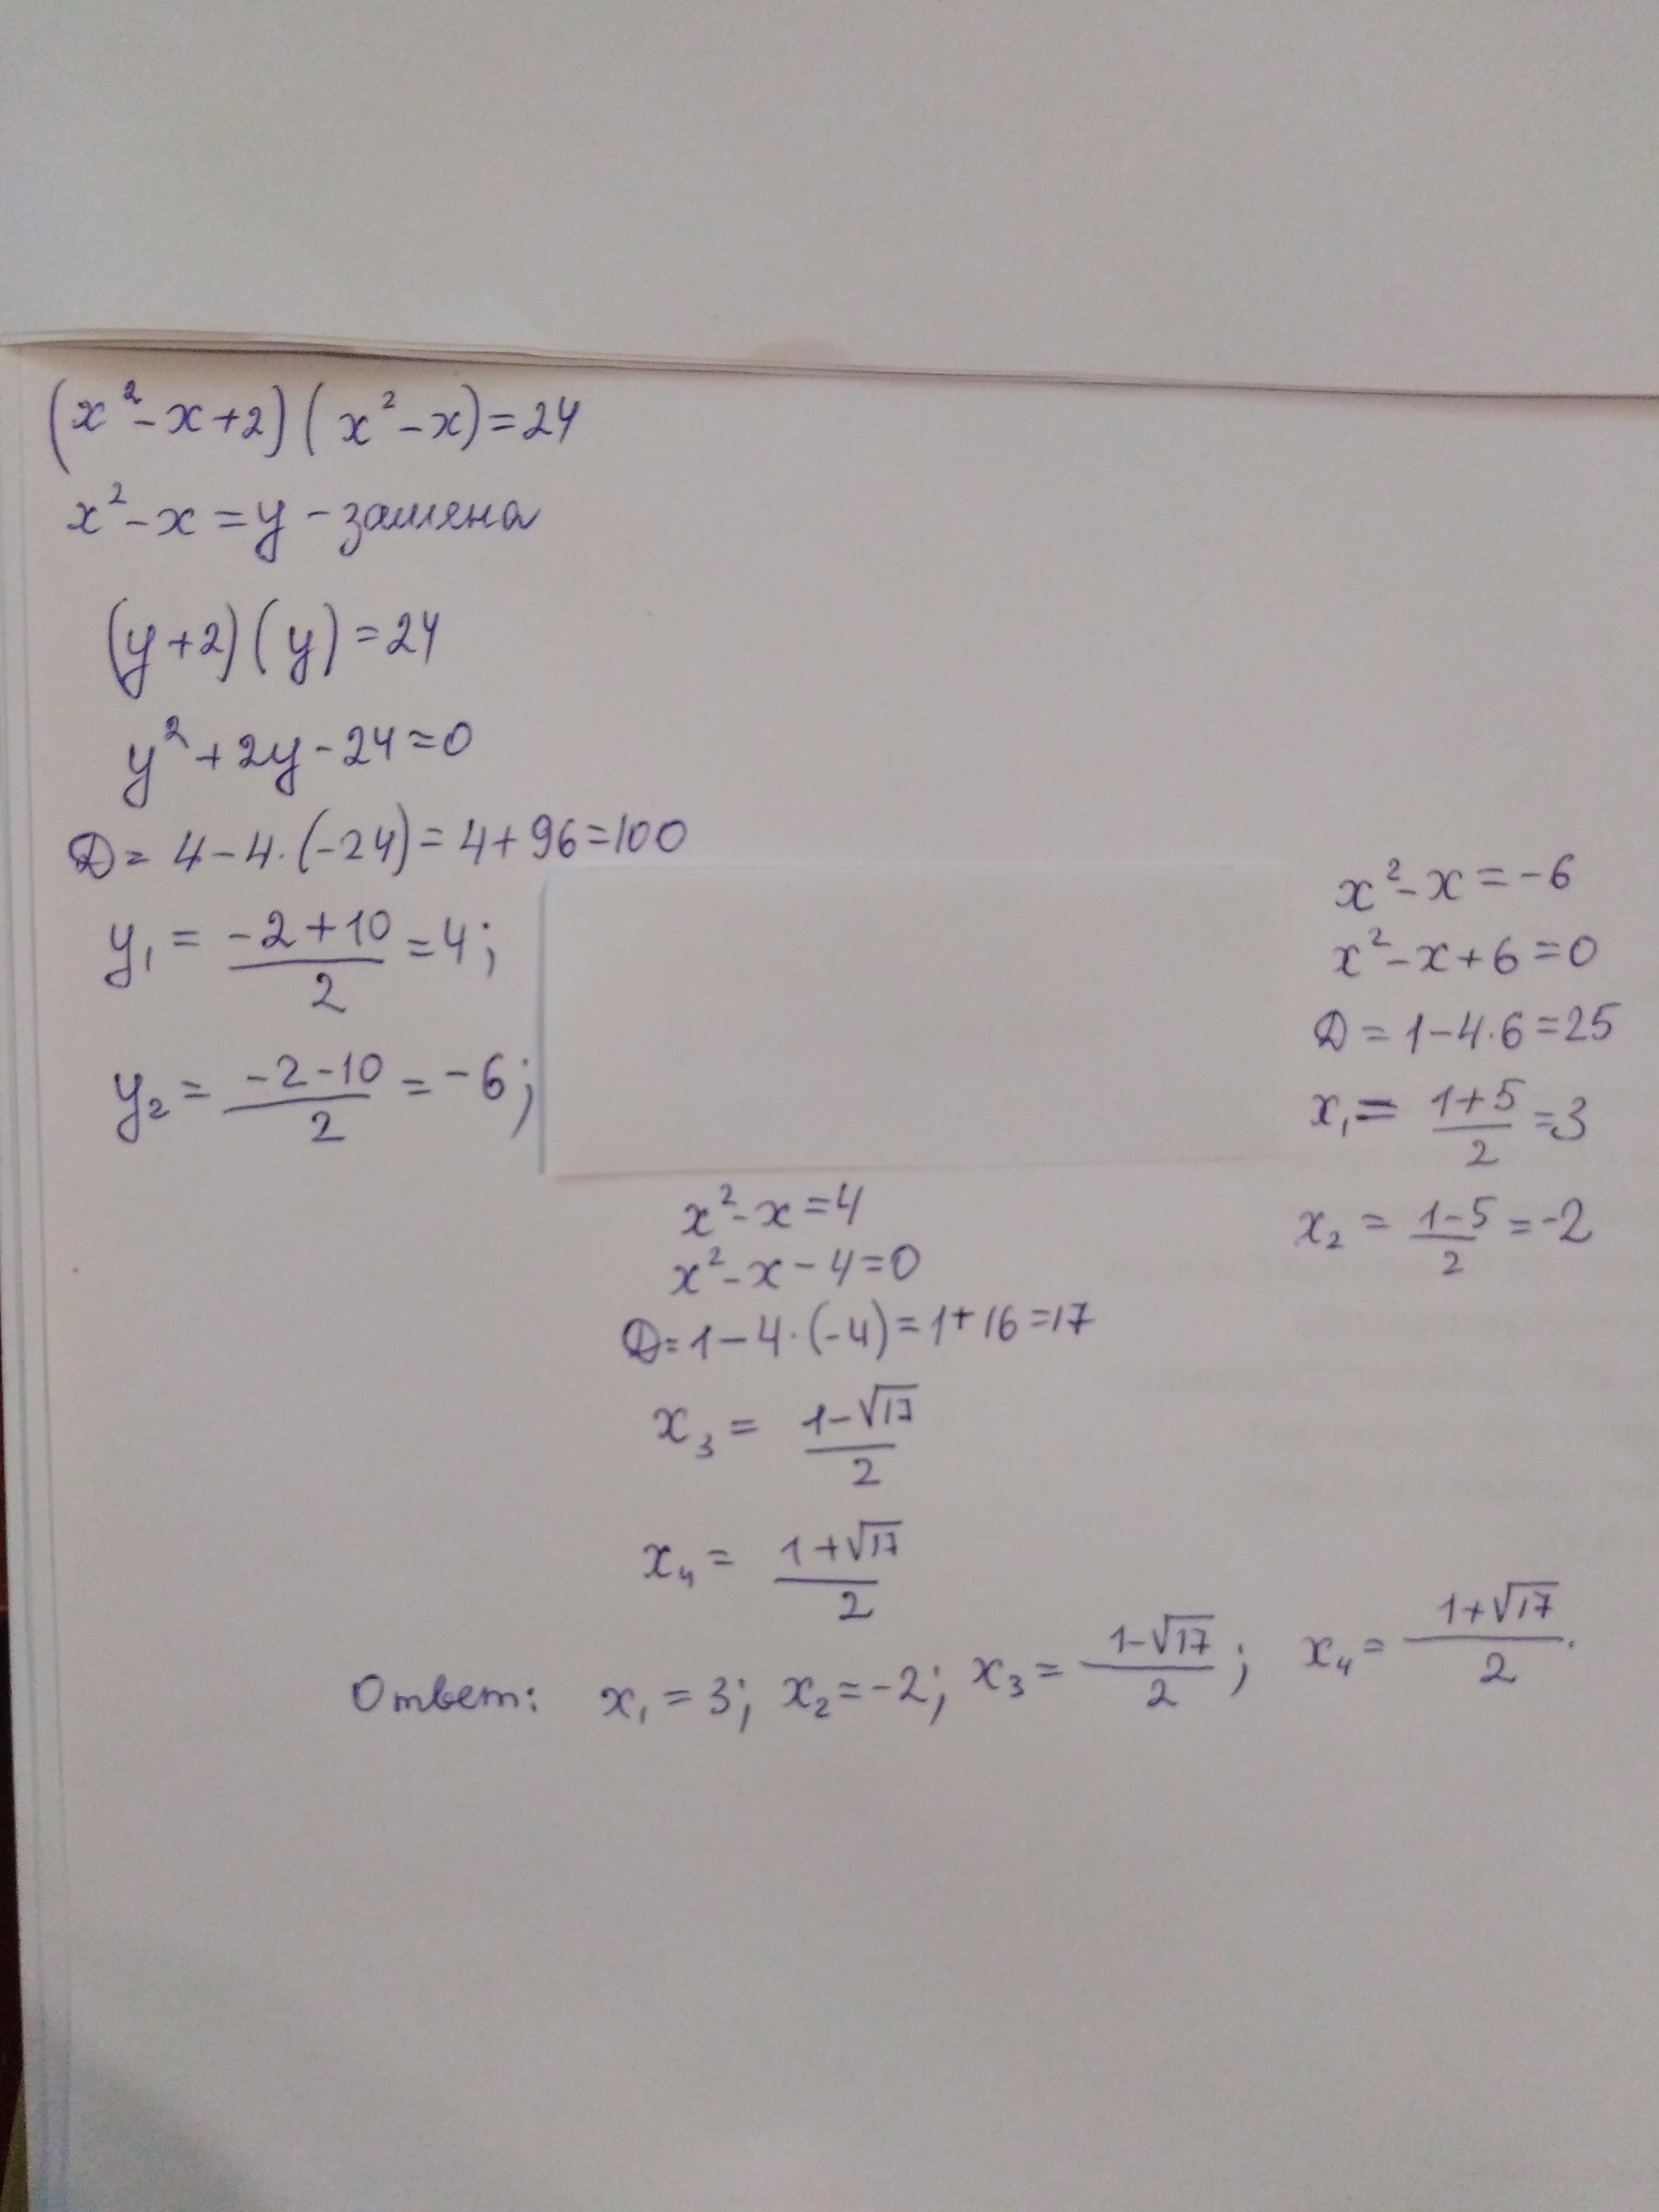 (x²-x+2)(x²-x)=24
x²-x=y-замена
(y+2)(y)=24
y²+2y-24=0
D=4-4·(-24)=4+96=100
y₁=(-2+10)/2=4;
y₂=(-2-10)/2=-6;
x²-x=4
x²-x-4=0
D=1-4·(-4)=1+16=17
x₃=(1-√17)/2
x₄=(1+√17)/2
x²-x=-6
x²-x+6=0
D=1-4·6=25
x₁=(1+5)/2=3
x₂=(1-5)/2=-2
Ответ: x₁=3; x₂=-2; x₃=(1-√17)/2; x₄=(1+√17)/2.